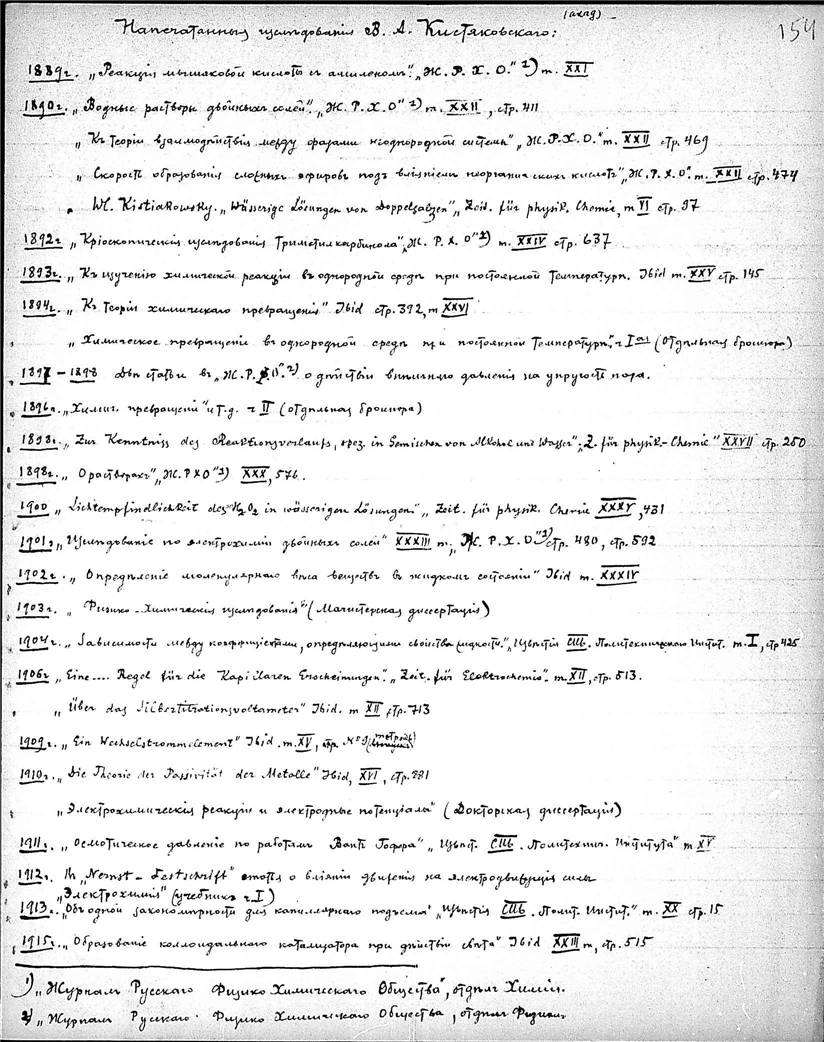 (акад)
154
Напечатанныя изслѣдованія В. А. Кистяковскаго:
1889г. „Реакція мышьяковой кислоты съ амиленомъ". „Ж. Р. Х. О." 2) т. XXI
1890г. „Водные растворы двойныхъ солей". „Ж. Р. Х. О" 2) т. XXII, стр. 411
„Къ теоріи взаимодѣйствія между фазами неоднородной системы" „Ж. Р. Х. О." т. XXII стр. 469
„Скорость образованія сложныхъ эфировъ подъ вліяніемъ неорганическихъ кислотъ" „Ж. Р. Х. О". т. XXII стр. 474
„ Wl. Kistiakowsky. „Wässerige Lösungen von Doppelsalzen" „Zeid. für physik. Chemie, т VI стр. 97
1892г „Кріоскопическія изслѣдованія Триметилкарбинола" „Ж. Р. Х О" 2) т. XXIV стр. 637
1893г. „Къ изученію химической реакціи въ однородной средѣ при постоянной температурѣ. Ibid т. XXV стр. 145
1894г. „Къ теоріи химическаго превращенія" Ibid стр. 392, т XXVI
„Химическое превращеніе въ однородной средѣ при постоянной температурѣ". ч Iая (отдѣльная брошюра)
1897 – 1898 Двѣ статьи въ „Ж. Р. Х. О". 2) о дѣйствіи внѣшняго давленія на упругость пара.
1896г. „Химич. превращеніи" и т. д. ч II (отдѣльная брошюра)
1898г. „Zur Kenntniss des Reaktionsverlaufs, spez. in Gemischen von Alkohol und Wasser" „Z. für physik.- Chemie" XXVII стр. 250
1898г. „О растворахъ" „Ж. Р Х О" 1) XXX, 576.
1900 „Lichtempfindlichkeit des H2O2 in wässerigen Lösungen." „Zeit. für physik. Chemie XXXV, 431
1901г „Изслѣдованіе по электрохиміи двойныхъ солей" XXXIII т, „Ж. Р. Х. О" 1) стр. 480, стр. 592
1902г. „Опредѣленіе молекулярнаго вѣса веществъ въ жидкомъ состояніи" Ibid т. XXXIV
1903г. „Физико-Химическія изслѣдованія" (Магистерская диссертація)
1904г. „Зависимости между коэффиціентами, опредѣляющими свойства жидкости." „Извѣстія СПБ. Политехническаго Инстит. т. I, стр 425
1906г „Eine.... Regel für die Kapilaren Erscheinungen". „Zeit. für Elektrochemie". т. XII, стр. 513.
„Über das Silbertitrationsvoltameter" Ibid. т XII, стр. 713
1909г. „Ein Wechselstromelement" Ibid. т. XV, стр. № 9
1910г. „Die Theorie der Passivität der Metalle" Ibid, XVI, стр.
„Электрохимическія реакціи и электродные потенціалы" (Докторская диссертація)
1911г. „Осмотическое давленіе по работамъ Вантъ Гоффа" „Извѣст. СПБ. Политехнич. Института" т XV
1912г. In „Nernst – Festschrift" статья о вліяніи движенія на электродвижущія силы
„Электрохимія" (учебникъ ч. I)
1913г. „Объ одной закономѣрности для капиллярнаго подъема" „Извѣстія СПБ. Полит. Инстит." т. XX стр. 15
1915г. „Образованіе коллоидальнаго катализатора при дѣйствіи свѣта" Ibid XXIII т, стр. 515
1) „Журналъ Русскаго Физико Химическаго Общества", отдѣлъ Химіи.
2) „Журналъ Русскаго Физико Химическаго Общества, отдѣлъ Физики.